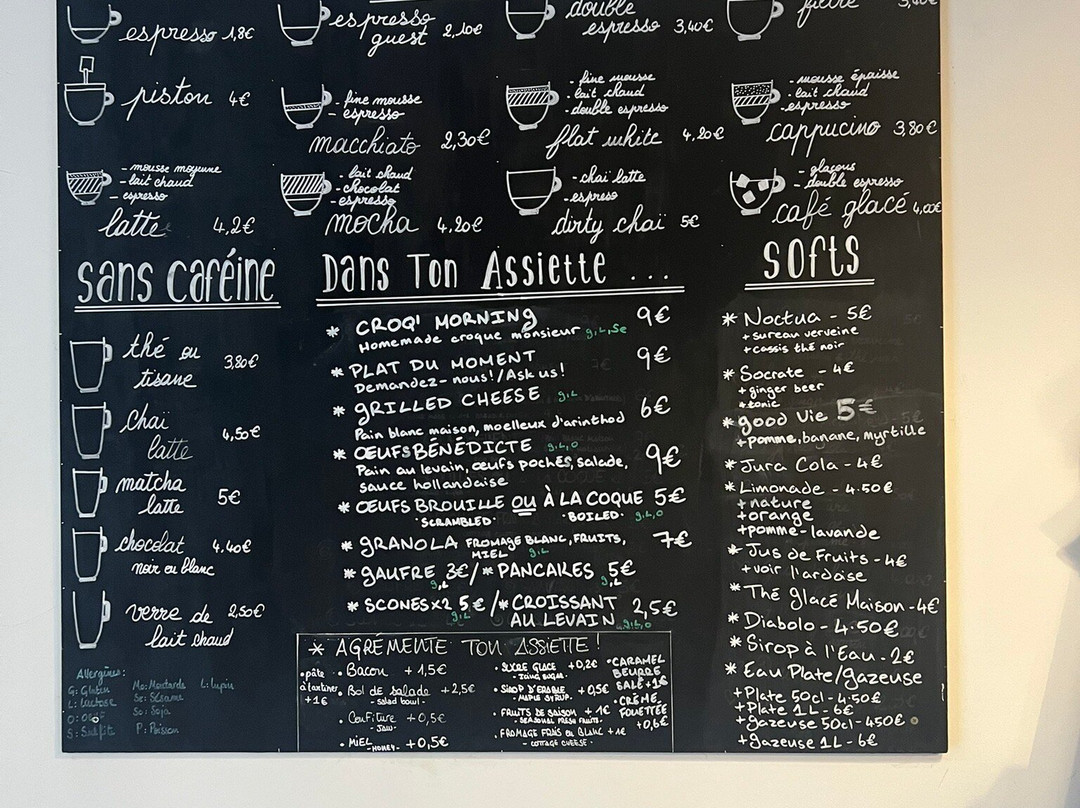 espresso 1,8€
espresso
guest 2,10€
double
espresso 3,40€
piston 4€
- fine mousse
- espresso
macchiato 2,30€
- fine mousse
- lait chaud
- double espresso
flat white 4,20€
- mousse épaisse
- lait chaud
- espresso
cappucino 3,80€
- mousse moyenne
- lait chaud
- espresso
latte 4,2€
- lait chaud
- chocolat
- espresso
mocha 4,20€
- chaï latte
- espreso
dirty chaï 5€
- glaçons
- double espresso
café glacé 4,00€
Sans Caféine
thé ou
tisane 3,80€
chaï
latte 4,50€
matcha
latte 5€
chocolat 4.40€
noir ou blanc
verre de 2,50€
lait chaud
Allergènes:
G: Gluten
L: Lactose
S: Sulfite
Mo: Moutarde
Se: Sésame
So: Soja
P: Poisson
L: lupin
Dans Ton Assiette ...
* CROQ' MORNING 9€
Homemade croque monsieur g,L,Se
* PLAT DU MOMENT 9€
Demandez-nous!/Ask us!
* GRILLED CHEESE g,L 6€
Pain blanc maison, moelleux d'arinthod
* ŒUFS BÉNÉDICTE g,L,O 9€
Pain au levain, œufs pochés, salade,
sauce hollandaise
* ŒUFS BROUILLE OU À LA COQUE 5€
"SCRAMBLED" "BOILED" g,L,O
* GRANOLA FROMAGE BLANC, FRUITS, 7€
MIEL g,L
* GAUFRE 3€/* PANCAKES 5€
g,L g,L
* SCONES x2 5€ /* CROISSANT 2,5€
g,L AU LEVAIN g,L,O
* AGRÉMENTE TON ASSIETTE !
• pâte
à tartiner
+1€
• Bacon + 1,5€
• Bol de salade + 2,5€
- salad bowl -
• Confiture + 0,5€
- Jam -
• MIEL + 0,5€
- HONEY -
• SUCRE GLACE + 0,2€
- ICING SUGAR -
• SIROP D'ERABLE + 0,5€
- MAPLE SYRUP -
• FRUITS DE SAISON + 1€
- SEASONAL FRESH FRUITS -
• FROMAGE FRAIS OU BLANC + 1€
- COTTAGE CHEESE -
• CARAMEL
BEURRE
SALÉ +1€
• CRÈME
FOUETTÉE
+0,6€
SOFTS
* Noctua - 5€
+ sureau verveine
+ cassis thé noir
* Socrate - 4€
+ ginger beer
+ tonic
* good Vie 5€
+ pomme, banane, myrtille
* Jura Cola - 4€
* Limonade - 4.50€
+ nature
+ orange
+ pomme-lavande
* Jus de Fruits - 4€
+ voir l'ardoise
* Thé glacé Maison - 4€
* Diabolo - 4.50€
* Sirop à l'Eau - 2€
* Eau Plate/gazeuse
+ Plate 50cl - 4.50€
+ Plate 1L - 6€
+ gazeuse 50cl - 450€
+ gazeuse 1L - 6€